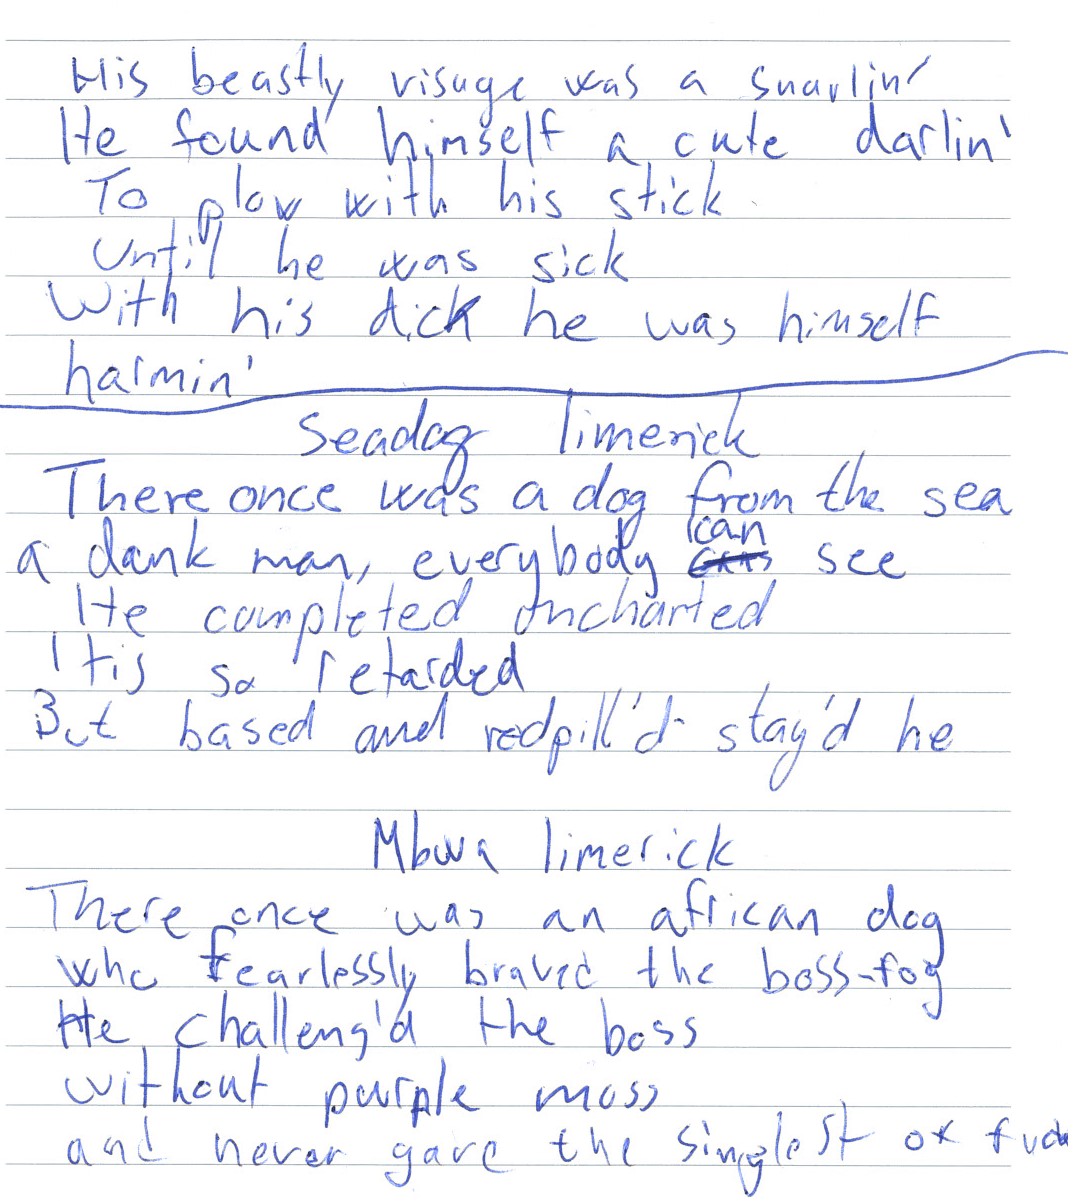 His beastly visage was a snarlin'
He found himself a cute darlin'
To plow with his stick
Until he was sick
With his dick he was himself
harmin'
Seadog limerick
There once was a dog from the sea
can
a dank man, everybody see
He completed Uncharted
Itis so retarded
But based and redpill'd stay'd he
Mbwa limerick
There once was an african dog
who fearlessly braved the boss-fog
He challeng'd the boss
without purple moss
and never gave the singlest of